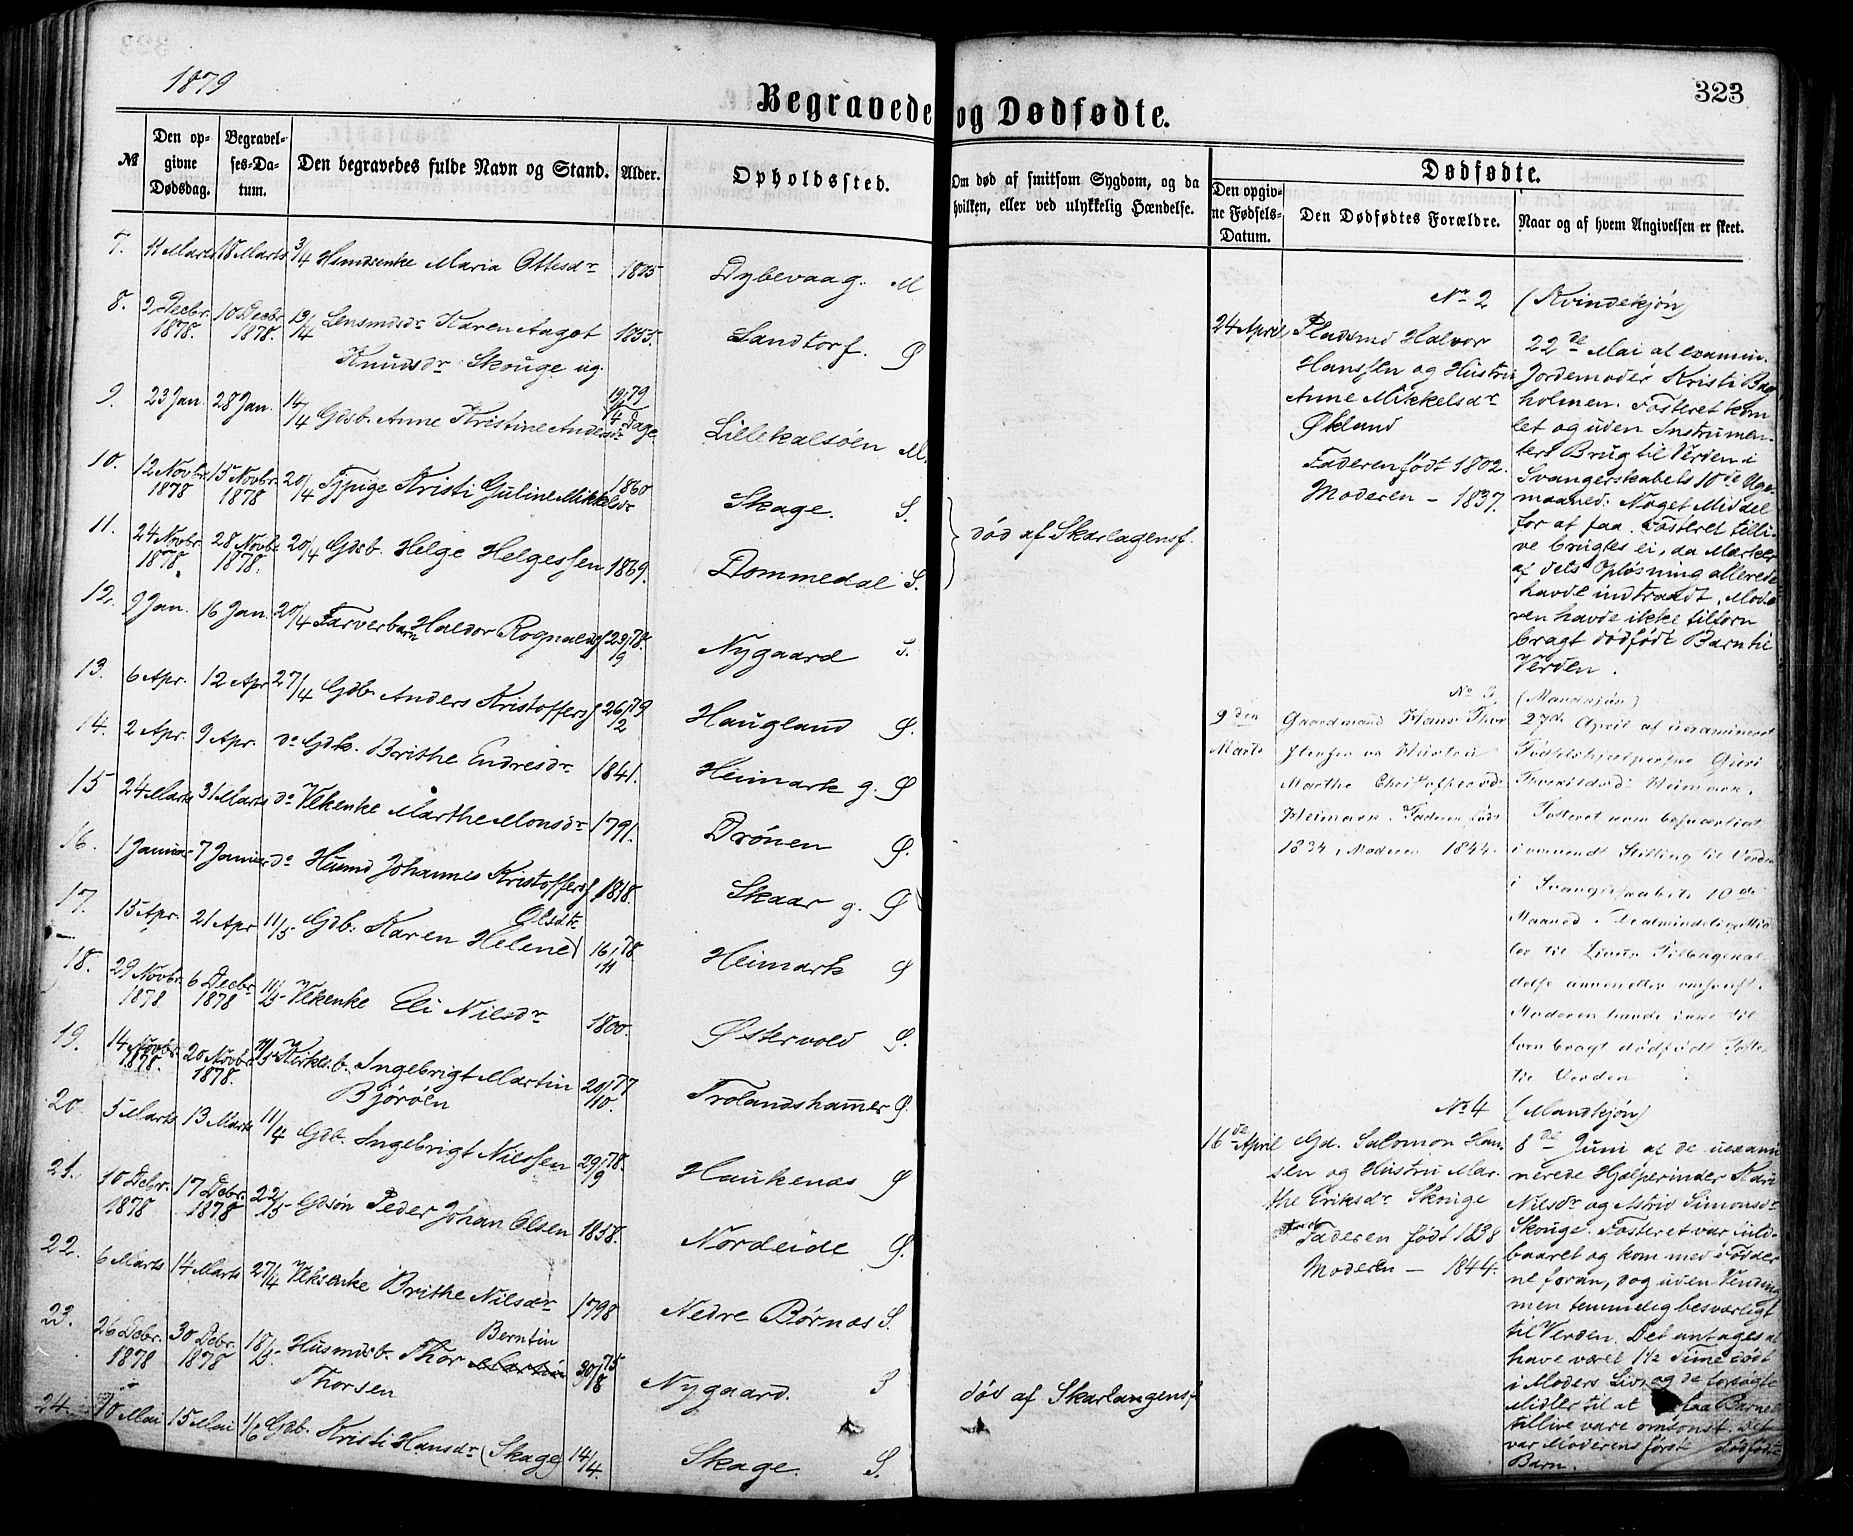 1879
323
Begravede og Dødfødte.
№
Den opgivne Dødsdag.
Begravelses-Datum.
Den begravedes fulde Navn og Stand.
Alder.
Opholdssted.
Om død af smitsom Sygdom, og da hvilken, eller ved ulykkelig Hændelse.
Dødfødte.
Den opgivne Fødsels-Datum.
Den Dødfødtes Forældre.
Naar og af hvem Angivelsen er skeet.
7. 11 Marts 18 Marts 3/4 Maria Ottesdr 1805 Dybevaag. M
8. 9 Decbr. 1878. 10 Decbr. 1878. 13/14 Lensmdsdr Karen Aagot 1855. Landtorf. Ø
Knudsdr Skouge ug.
9. 23 Jan. 28 Jan. 14/4 Gdsb. Anne Kristine Andersdr 19/1 79 4 Dage Lillekalsöen M.
10. 12 Novbr. 1878 15 Novbr. 1878 20/4 Tjpige Kristi Guline Mikkelsdr 1860 Skage. S.
11. 24 Novbr. 1878. 28 Novbr. 1878. 20/4 Gdsb. Helge Helgessen 1869. Dommedal S.
død af Skarlagensf.
12. 9 Jan. 16 Jan. 20/4 Farverbarn Haldor Rognaldsf 23/9 78. Nygaard S.
13. 6 Apr. 12 Apr 27/4 Gdb. Anders Kristoffersf 26/2 79 Haugland Ø.
14. 2 Apr. 9 Apr. do Gdk. Brithe Endresdr 1841. Heimark g. Ø
15 24 Marts 31 Marts do Vkenke Marthe Monsdr 1791. Drönen Ø.
16. 1 Januar 7 Januar do Husmd Johannes Kristoffersf 1818. Skaar g. Ø
17. 15 Apr. 21 Apr 11/5 Gdb. Karen Helene Olsdtr 16/11 78. Heimark Ø
18. 29 Novbr. 1878 6 Decbr. 1878 11/5 Vkenke Eli Nilsdr 1800. Østervold Ø.
19. 14 Novbr. 1878. 20 Novbr. 1878. 11/5 Kirks.b. Ingebrigt Martin 29/10 77 Trolandshamer Ø.
Björöen
20. 5 Marts 13 Marts 11/4 Gdb. Ingebrigt Nilssen 29/9 78. Haukenæs Ø
21. 10 Debr. 1878 17 Debr. 1878 22/5 Gdsøn Peder Johan Olsen 1858. Nordeide Ø.
22. 6 Marts 14 Marts 27/4 Brithe Nilsdr 1798 Nedre Børnæs S.
23. 26 Debr. 1878 30 Debr. 1878 18/5 Husmdsb. Thor Berntin 30/8 75 Nygaard. S
Thorsen
død af Skarlangensf
24. 10 Mai 15 Mai 1/6 Gdb. Kristi Hansdr (Skage) 14/4 Skage. S.
No 2 (Kvindekjøn)
24 April
Pladsmd Halvor
Hanssen og Hustru
Anne Mikkelsdr
Økland
Faderen født 1802.
Moderen — 1837.
22de Mai af examin.
Jordemoder Kristi Bag-
holmen. Fosteret kom
let og uden Instrumen-
ters Brug til Verden i
Svangerskabets 10de Uge-
maaned. Noget Middel
for at faa Fosteret tilli-
ve brugtes ei, da Mærker
af dets Opløsning allerede
havde indtraadt. Mode-
ren havde ikke tilforn
bragt dødfødt Barn til
Verden.
No 3 (Mandkjøn)
9den
Marts
Gaardmand Hans Thor
stensen og Hustru
Marthe Christophersdr
Heimark. Faderen født
1834, Moderen 1844.
27de April af uexamineret
Fødselshjelperske Guri
Heimark.
Fosteret kom besværligt
i Stilling til Verden
i Svangerskabets 10de
Maaned.
ler til Livets Tilbagekal-
delse anvendtes omsonst.
Moderen havde ikke til
forn bragt dødfødt Foster
til Verden
No 4 (Mandkjøn)
16de April
Gd. Salomon Han-
sen og Hustru Mar-
the Eriksdr Skouge
Faderen født 1838
Moderen — 1844.
8de Juni af de uexami
nerede Hjelperinder Kari
Nilsdr og Astrid Simonsdr
Skouge. Fosteret var fuld-
baaret og kom med Fødder
ne foran, dog uden Vending
men temmelig besværligt
til Verden. Det antages at
have været 1½ Time dødt
i Moders Liv, og de forsøgte
Midler til at faa Barnet
tillive vare omsonst. Det
var Moderens første dødfødte
Barn.